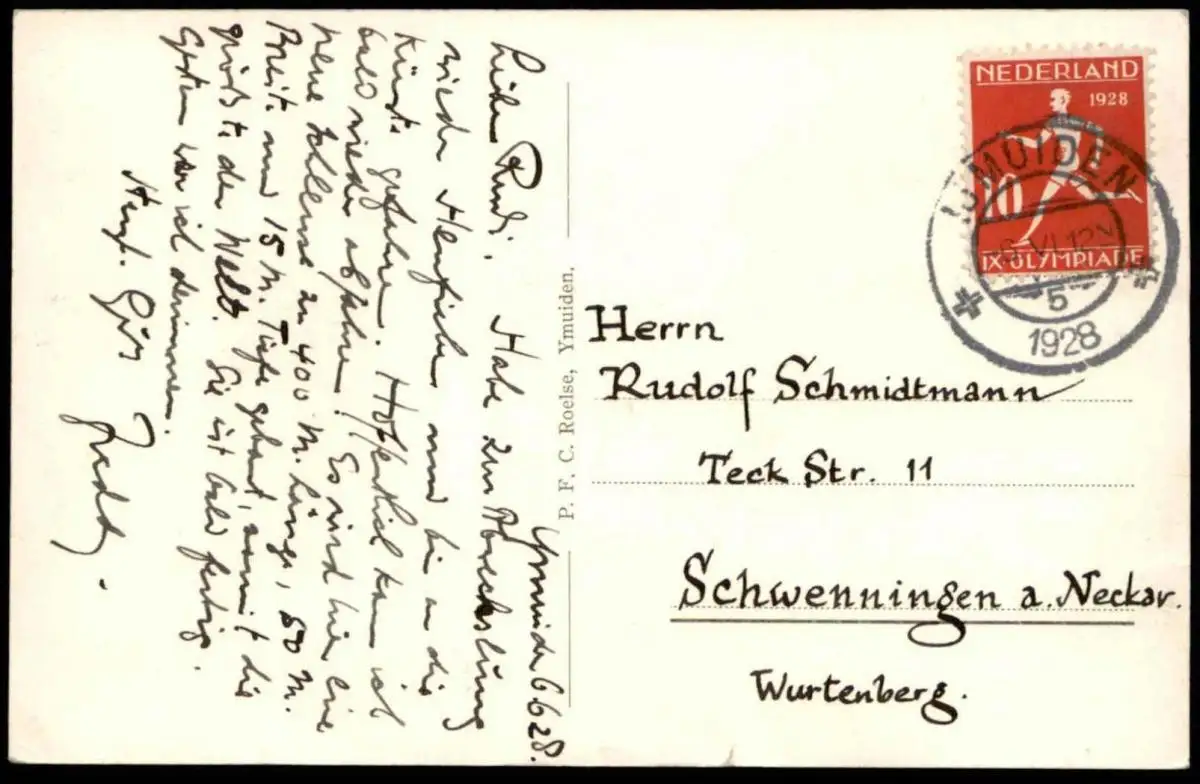 Ymuiden 6.6.28.
Lieber Rudi. Habe zur Abwechslung
wieder Menschen und bin an die
Küste gefahren. Hoffentlich kann ich
bald wieder abfahren! Es wird hier eine
neue Schleuse zu 400 M. Länge, 50 M.
Breite und 15 M. Tiefe gebaut, somit die
größte der Welt. Sie ist bald fertig.
Gestern war ich drinnen.
Herzl. Grüße
Freddy.
P. F. C. Roelse, Ymuiden.
NEDERLAND
1928
IX·OLYMPIADE
IJMUIDEN
6 VI 12 V
5
1928
Herrn
Rudolf Schmidtmann
Teck Str. 11
Schwenningen a. Neckar.
Wurtenberg.